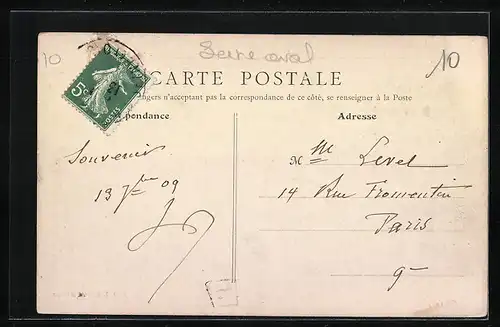 10
Serre aval
10
CARTE POSTALE
ngers n'acceptant pas la correspondance de ce côté, se renseigner à la Poste
pondance
Adresse
5c
POSTES
Souvenir
13 7bre 09
Mlle Level
14 Rue Fromentin
Paris
9e